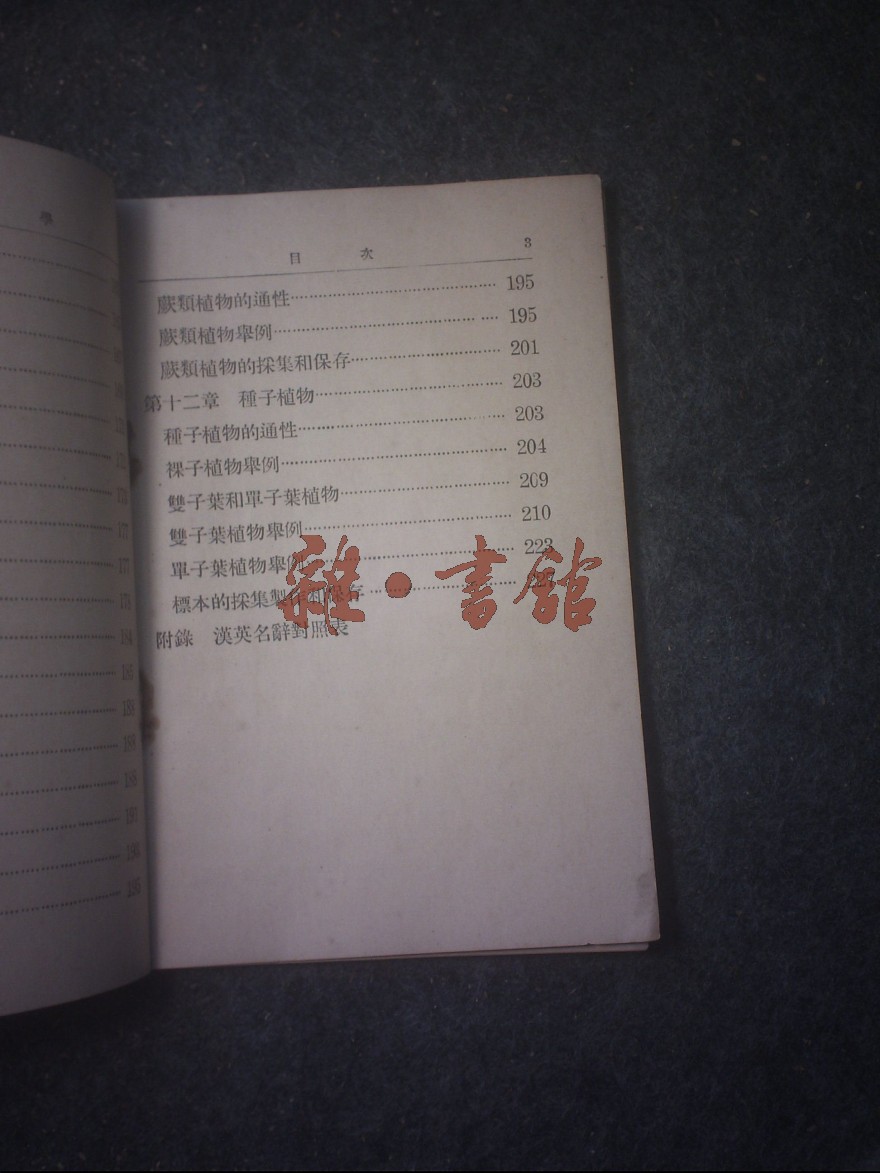 學
目 次 3
蕨類植物的通性 195
蕨類植物舉例 195
蕨類植物的採集和保存 201
第十二章 種子植物 203
種子植物的通性 203
裸子植物舉例 204
雙子葉和單子葉植物 209
雙子葉植物舉例 210
單子葉植物舉例 223
標本的採集製作和保存
附錄 漢英名辭對照表
雜・書館
177
177
178
184
185
188
188
188
191